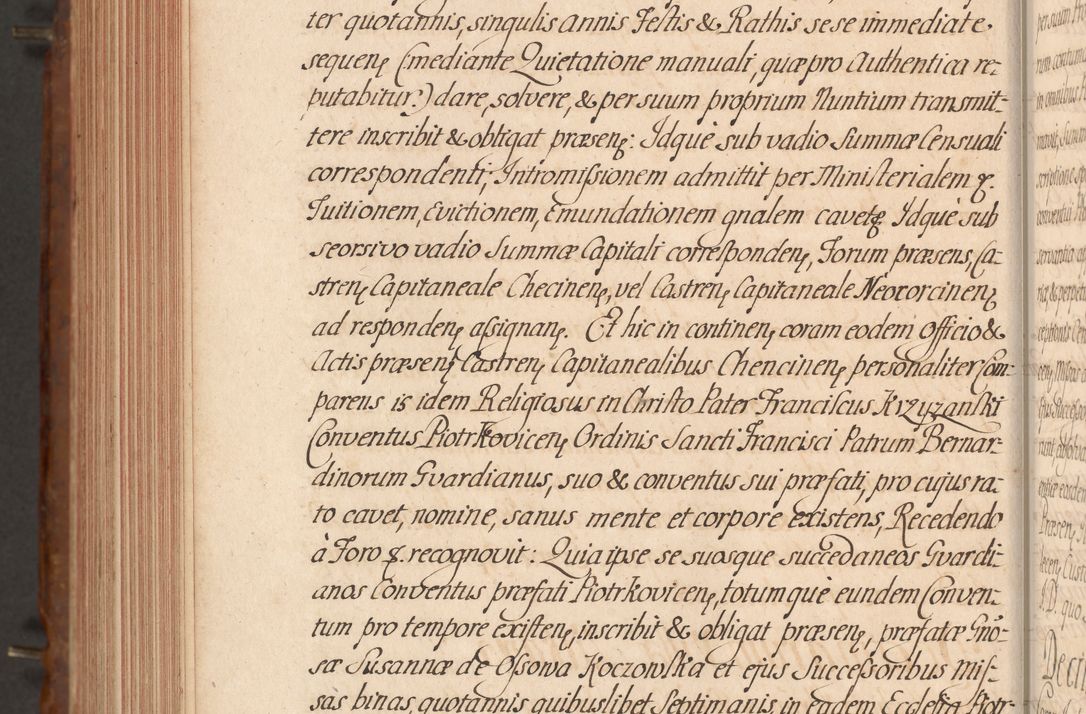 ter quotannis, singulis annis Festis & Rathis sese immediate
sequen, (mediante Quietatione manuali, quæ pro Authentica re-
putabitur.) dare, solvere, & per suum proprium Nuntium transmit-
tere inscribit & obligat præsen: Idquè sub vadio Summæ Censuali
correspondenti, Intromissionem admittit per Ministerialem &.
Tuitionem, Evictionem, Emundationem gnalem cavet & Idquè sub
seorsivo vadio Summæ Capitali corresponden, Forum præsens, Ca-
stren, Capitaneale Checinen, vel Castren, Capitaneale Neoxorcinen,
ad responden, assignan. Et hic in continen, coram eodem Officio &
Actis præsen, Castren, Capitanealibus Chencinen, personaliter Com-
parens is idem Religiosus in Christo Pater Franciscus Krzyzanski
Conventus Piotrkovicen, Ordinis Sancti Francisci Patrum Bernar-
dinorum Gvardianus, suo & conventus sui præfati, pro cujus ra-
to cavet, nomine, sanus mente et corpore existens, Recedendo
à Foro &. recognovit: Quia ipse se suosque succedaneos Gvardi-
anos Conventus præfati Piotrkovicen, totumquè eundem Conven-
tum pro tempore existen, inscribit & obligat præsen, præfatæ Gnō-
sæ Susannæ de Ossowa Koczowska et ejus Successoribus Mis-
sas binas quotannis quibuslibet Septimanis in eadem Ecclesia Piotr-